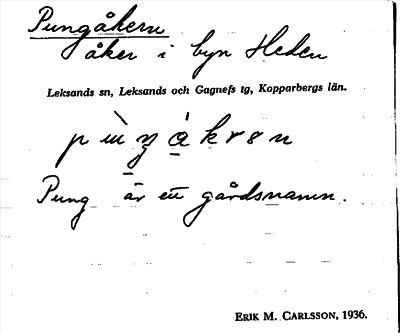 Pungåkern
åker i byn Heden
Leksands sn, Leksands och Gagnefs tg, Kopparbergs län.
Pung är ett gårdsnamn.
ERIK M. CARLSSON, 1936.